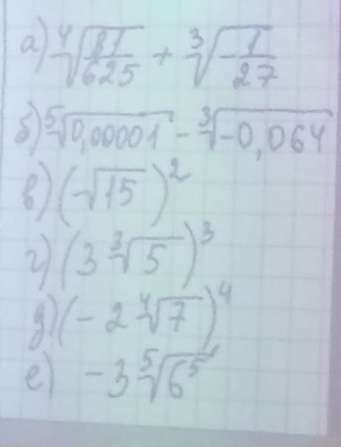 а) ⁴√(81/625) + ³√(-1/27)
б) ⁵√0,00001 - ³√-0,064
в) (-√15)²
г) (3 ³√5)³
д) (-2 ⁴√7)⁴
е) -3 ⁵√6⁵